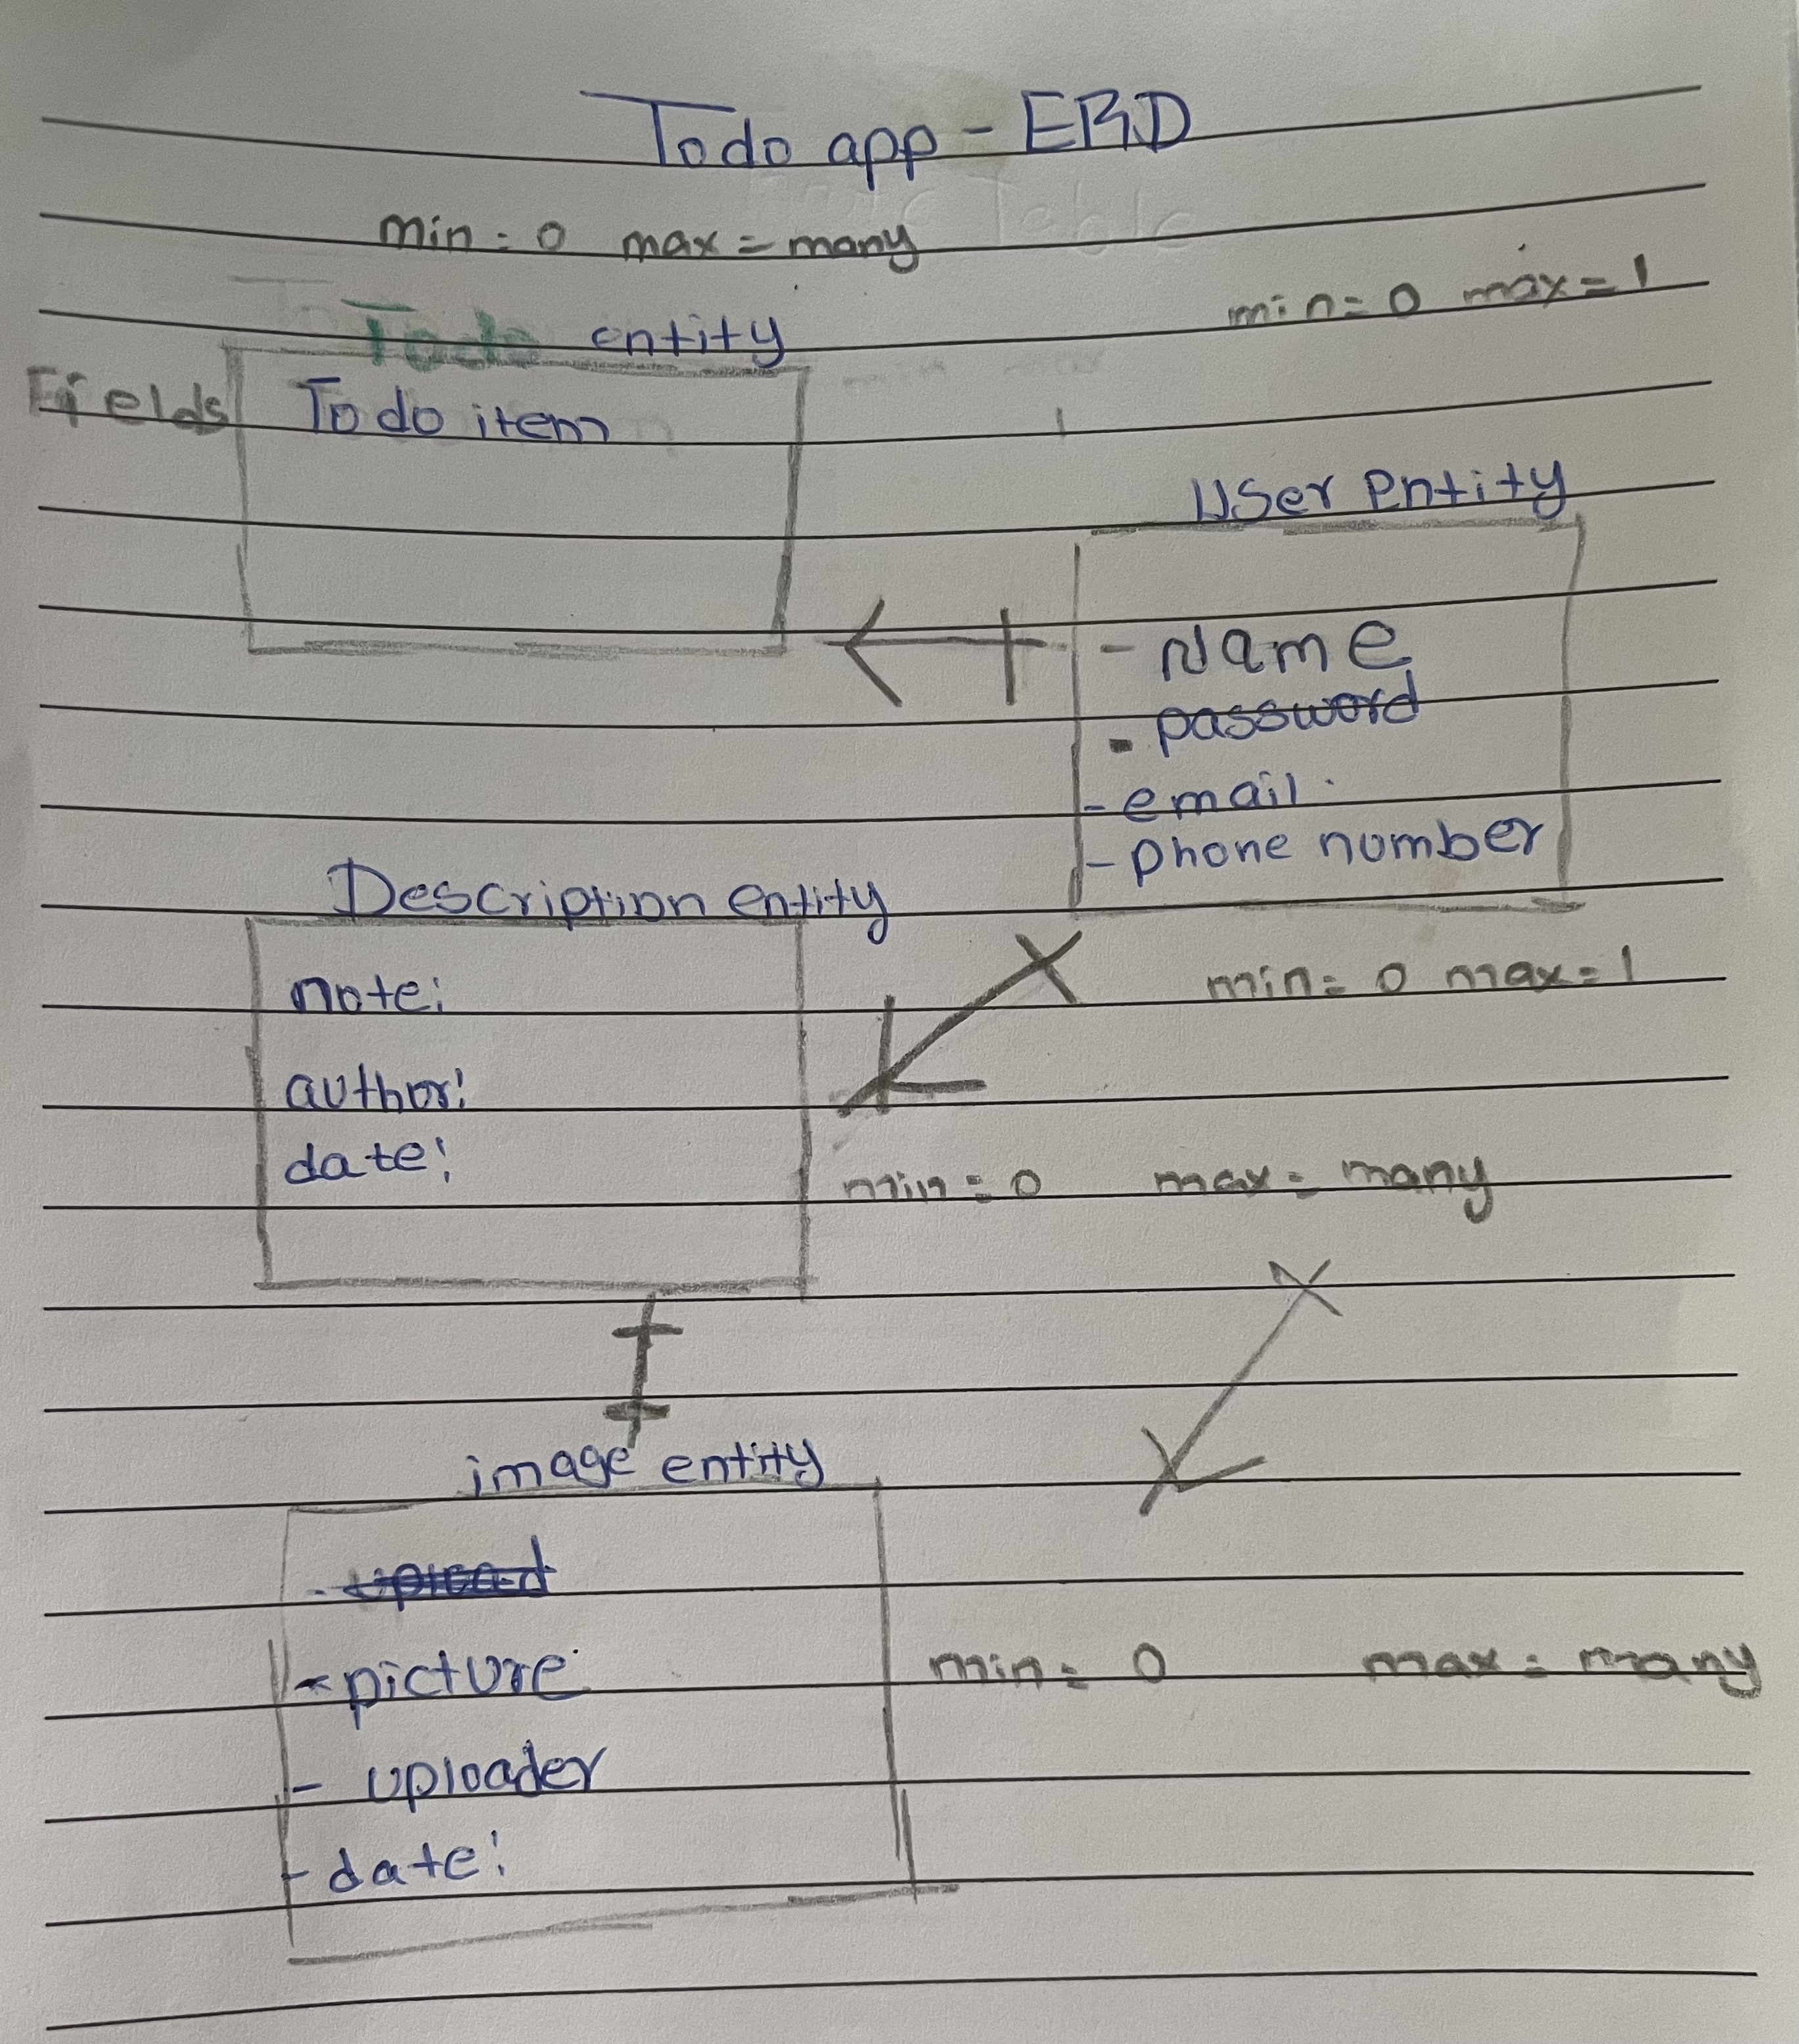 Todo app - ERD
min = 0 max = many
min = 0 max = 1
Todo entity
Fields
Todo item
User entity
- Name
- password
- email
- phone number
Description entity
note:
author:
date:
min = 0 max = 1
min = 0 max = many
image entity
- upload
- picture:
- uploader
- date:
min = 0 max = many